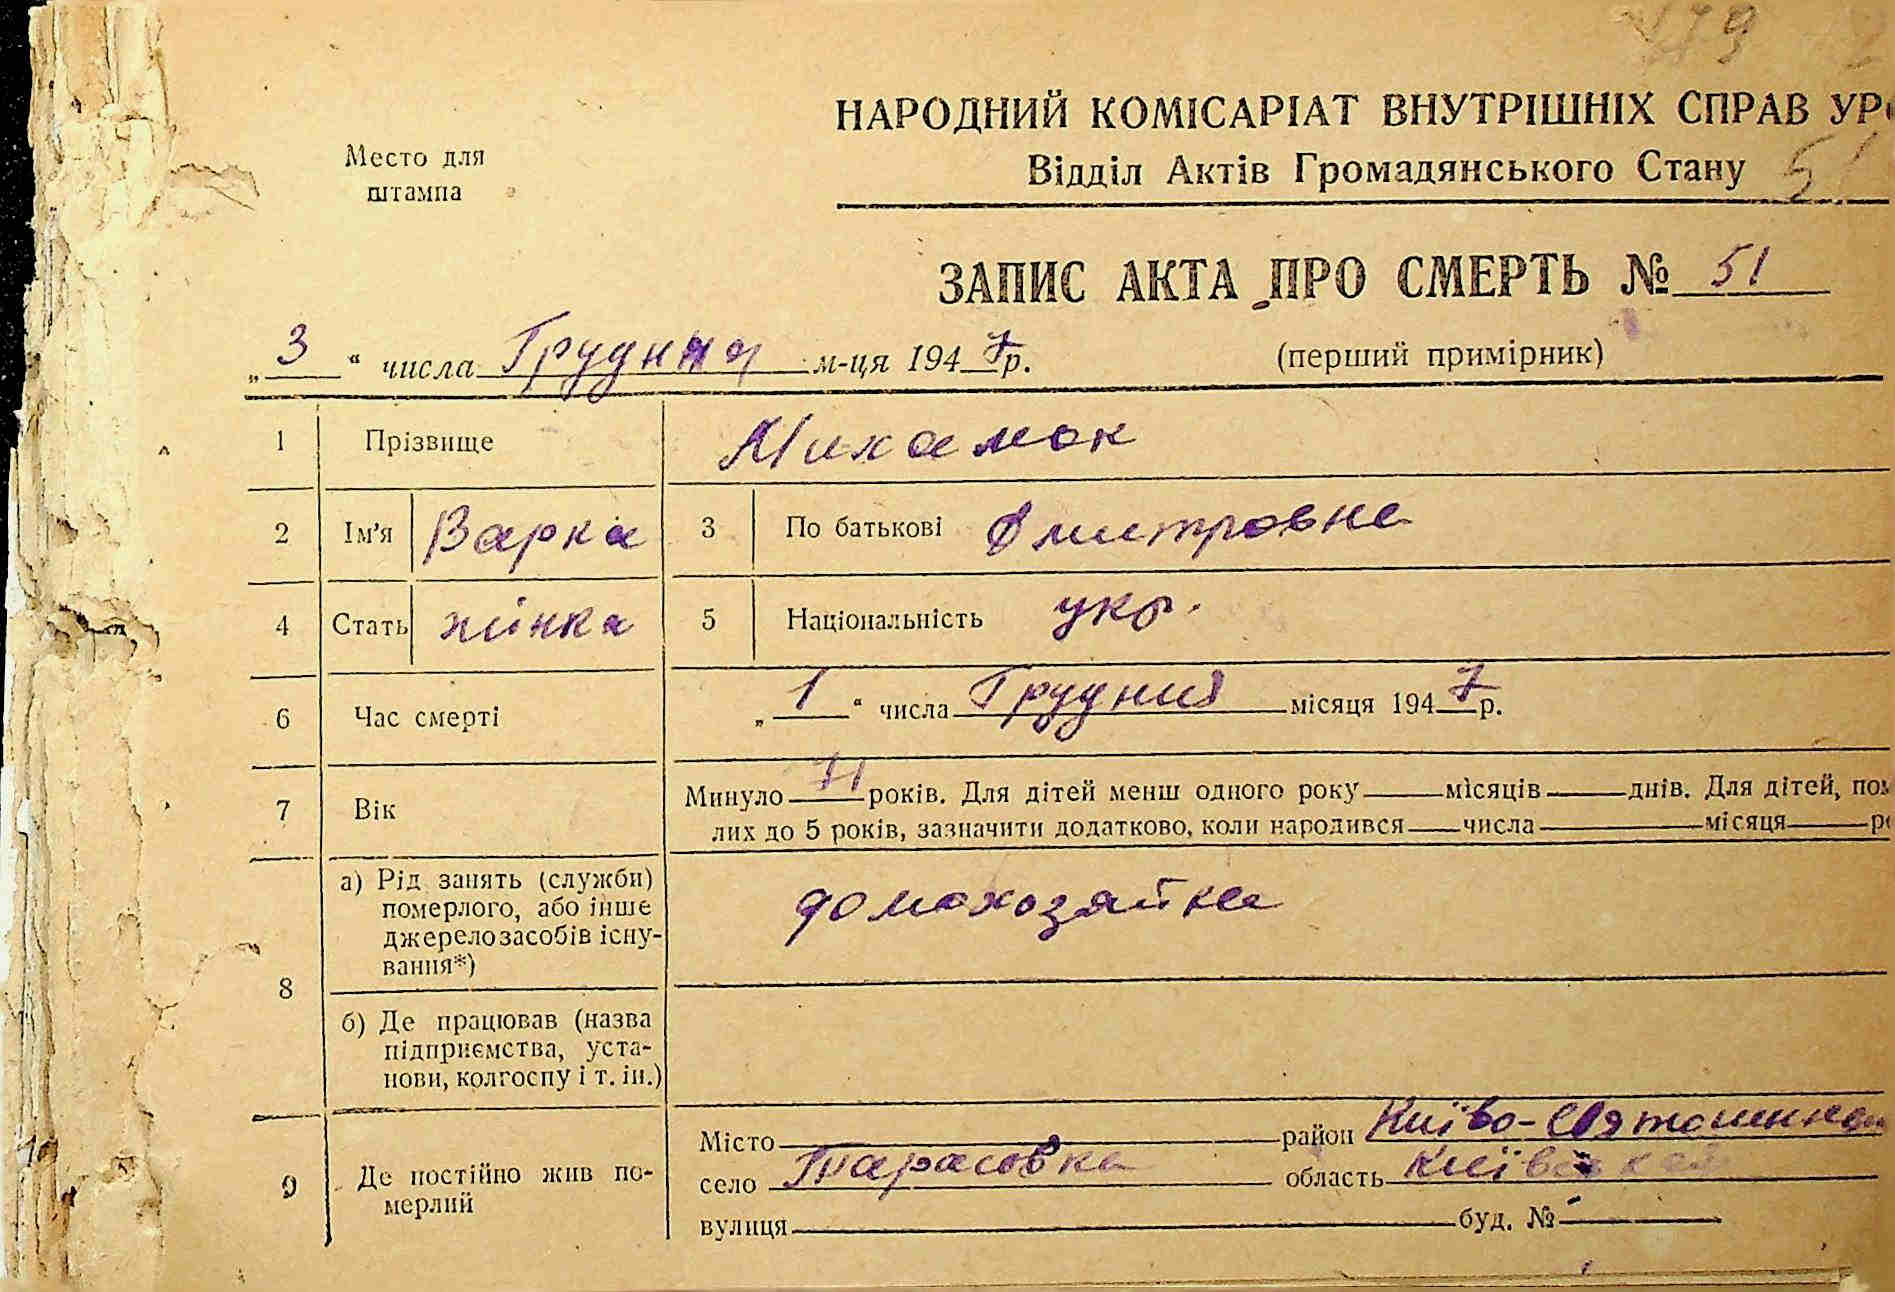 НАРОДНИЙ КОМІСАРІАТ ВНУТРІШНІХ СПРАВ УР
Место для
штампа
Відділ Актів Громадянського Стану 51
ЗАПИС АКТА ПРО СМЕРТЬ № 51
„ 3 “ числа Грудня м-ця 1947 р. (перший примірник)
1 Прізвище
2 Ім'я Варка 3 По батькові Дмитровна
4 Стать жінка 5 Національність укр.
6 Час смерті „ 1 “ числа Грудня місяця 1947 р.
7 Вік Минуло 71 років. Для дітей менш одного року місяців днів. Для дітей, пом
лих до 5 років, зазначити додатково, коли народився числа місяця
8 а) Рід занять (служби)
померлого, або інше
джерело засобів існу-
вання*)
домохозяйка
б) Де працював (назва
підприємства, уста-
нови, колгоспу і т. ін.)
9 Де постійно жив по-
мерлий
Місто район Київо-Святошинский
село Тарасовка область Київская
вулиця буд. №